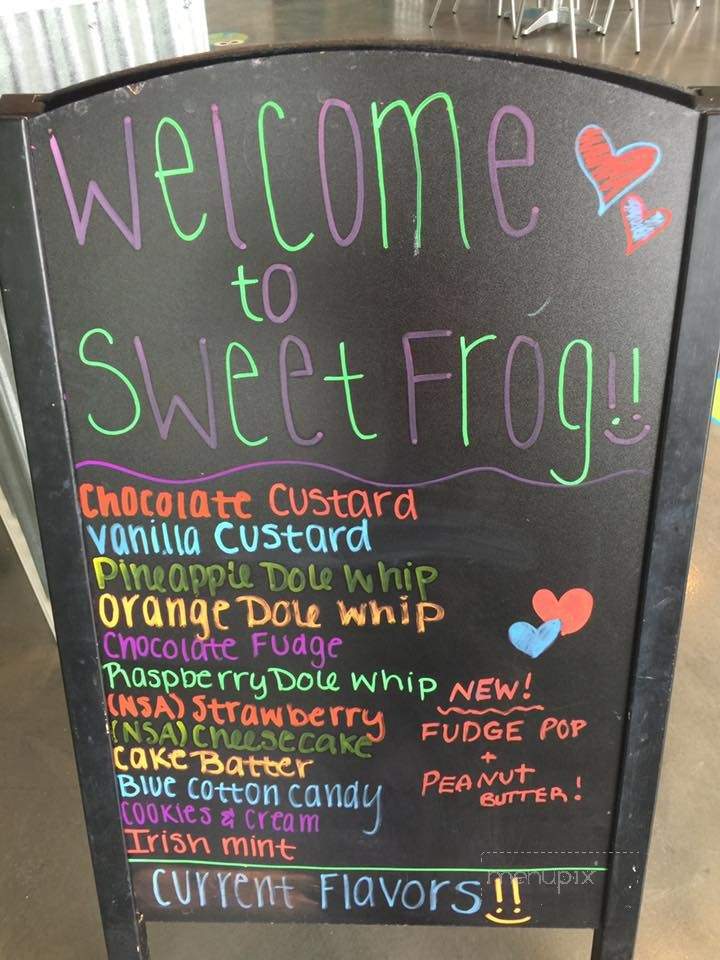 Welcome
to
Sweet Frog!!
Chocolate Custard
Vanilla Custard
Pineapple Dole Whip
Orange Dole Whip
Chocolate Fudge
Raspberry Dole Whip
(NSA) Strawberry
(NSA) Cheesecake
Cake Batter
Blue Cotton Candy
Cookies & Cream
Irish mint
NEW!
FUDGE POP
+
PEANUT
BUTTER!
Current Flavors!!
menupix